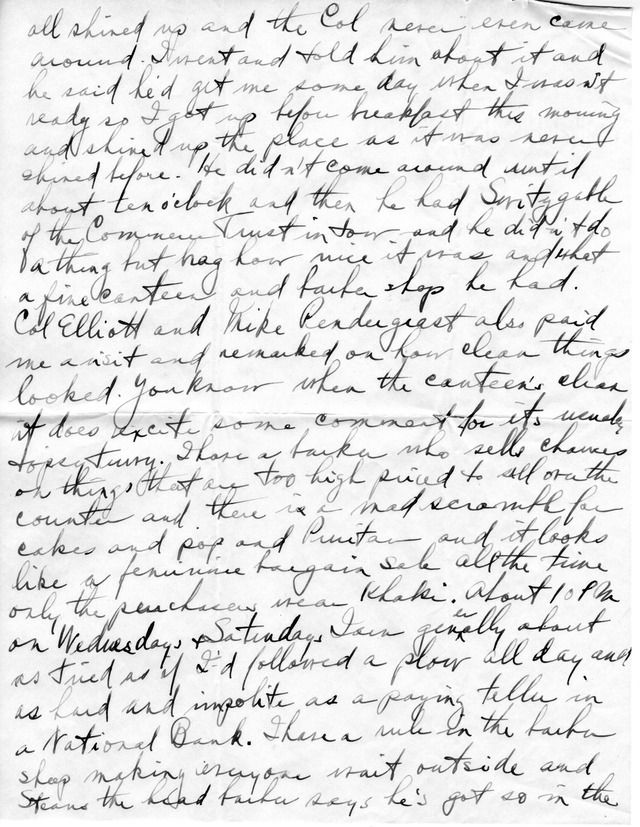 all shined up and the Col never even came
around. I went and told him about it and
he said he'd get me some day when I wasn't
ready so I got up before breakfast this morning
and shined up the place as it was never
shined before. He didn't come around until
about ten o'clock and then he had
of the Commerce Trust in tow and he didn't do
a thing but brag how nice it was and what
a fine canteen and barber shop he had.
Col Elliott and Mike Pendergrast also paid
me a visit and remarked on how clean things
looked. You know when the canteen's clean
it does excite some comment for it's usually
topsy turvy. I have a barber who sells chances
on things that are too high priced to sell over the
counter and there is a mad scramble for
cakes and pop and Puritan and it looks
like a feminine bargain sale all the time
only the purchasers wear Khaki. About 10 PM
on Wednesdays & Saturdays I am generally about
as tired as if I'd followed a plow all day and
as hard and impolite as a paying teller in
a National Bank. I have a rule in the barber
shop making everyone wait outside and
the head barber says he's got so in the